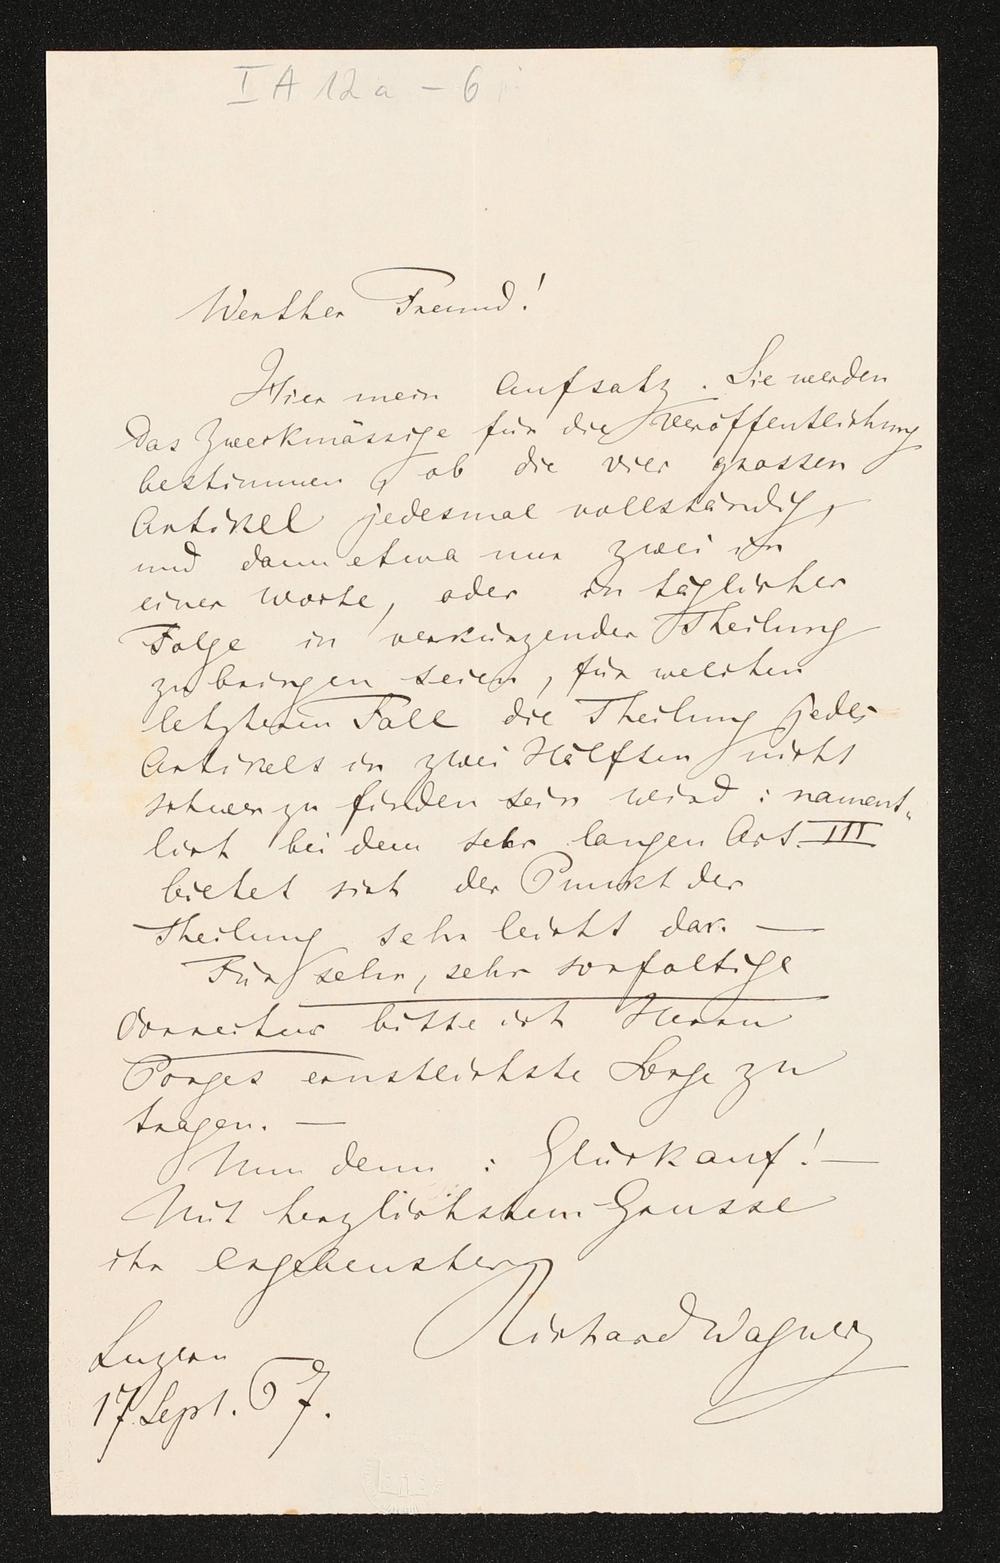 I A 12a – 6
Werther Freund!
Hier mein Aufsatz. Sie werden
das Zweckmässige für die Veröffentlichung
bestimmen, ob die vier grossen
Artikel jedesmal vollständig,
und dann etwa nur zwei in
einer Woche, oder in täglicher
Folge in verkürzender Theilung
zu bringen seien, für welchen
letzteren Fall die Theilung jedes
Artikels in zwei Hälften nicht
schwer zu finden sein wird: nament-
lich bei dem sehr langen Art. III
bietet sich der Punkt der
Theilung sehr leicht dar. —
Für sehr, sehr sorgfaltige
Correctur bitte ich Herrn
Porges ernstlichste Sorge zu
tragen. —
Nun denn: Glückauf! —
Mit herzlichstem Grusse
ihr ergebenster
Richard Wagner
Luzern
17 Sept. 67.